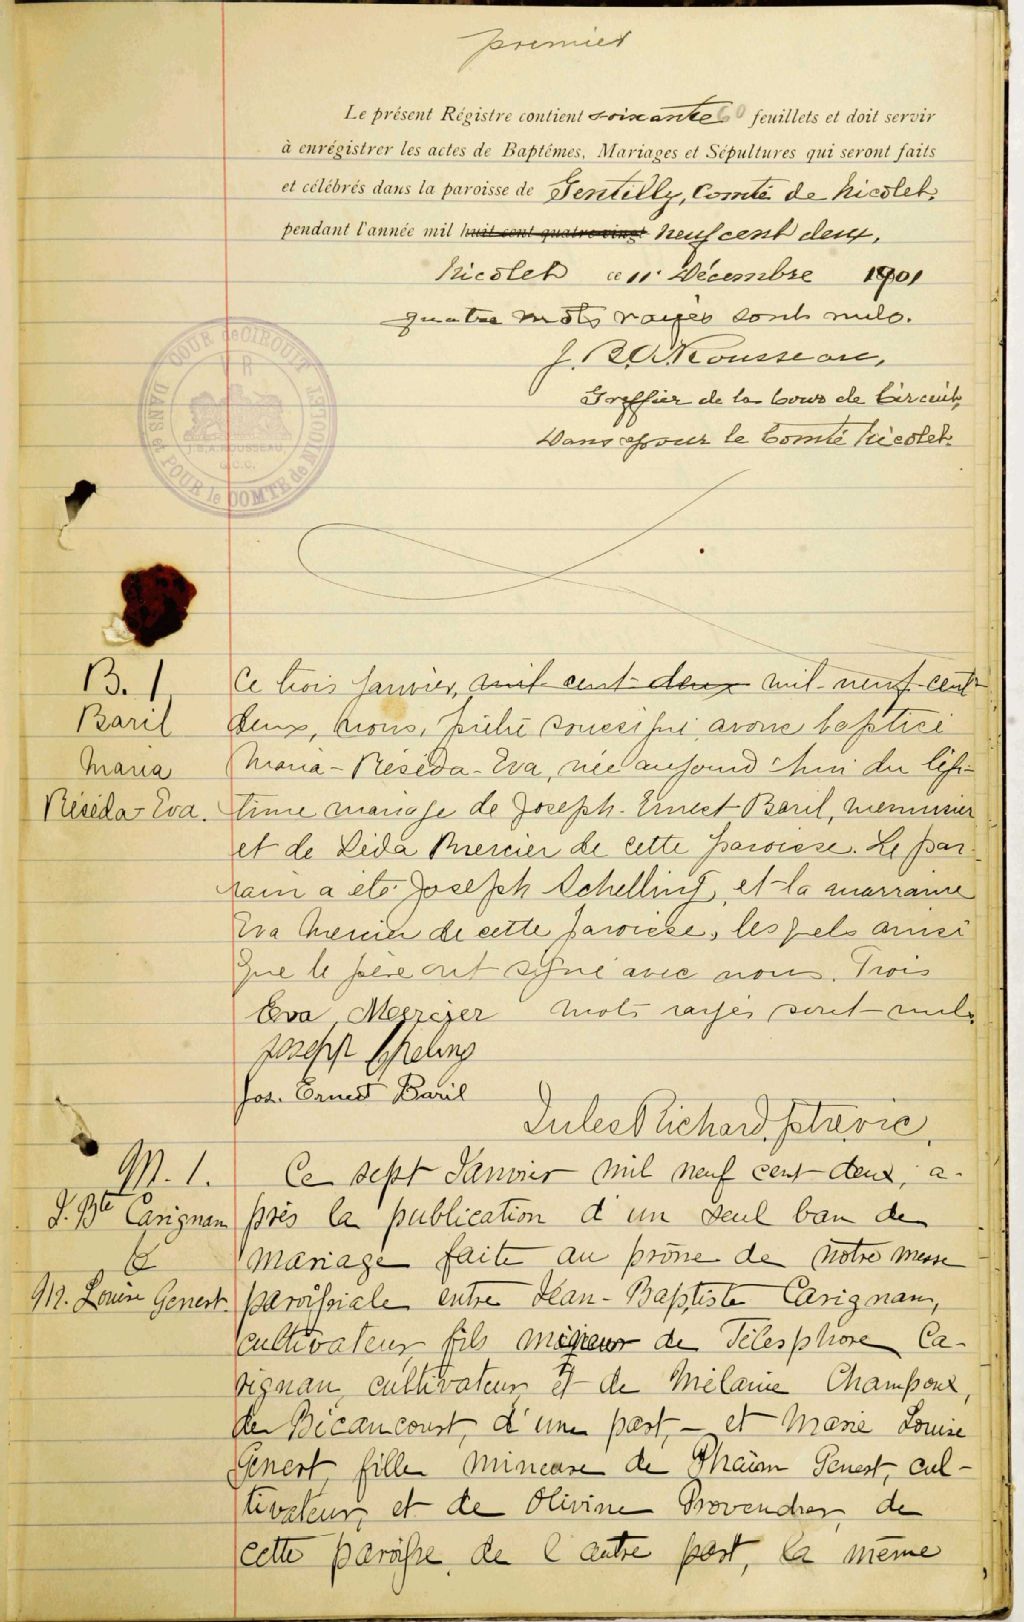 premier
Le présent Régistre contient soixante 60 feuillets et doit servir
à enrégistrer les actes de Baptêmes, Mariages et Sépultures qui seront faits
et célébrés dans la paroisse de Gentilly, Comté de Nicolet,
pendant l'année mil huit cent quatre-vingt neuf cent deux,
Nicolet ce 11 Décembre 1901
quatre mots rayés sont nuls.
J. B. A. Rousseau,
Greffier de la Cour de Circuit,
Dans et pour le Comté Nicolet.
COUR de CIRCUIT
DANS et POUR le COMTE de NICOLET
V R
J.B.A. ROUSSEAU
G.C.C.
B. 1
Baril
Maria
Réséda-Eva.
Ce trois Janvier, mil cent deux mil-neuf-cent-
deux, nous, prêtre soussigné avons baptisé
Maria-Réséda-Eva, née aujourd'hui du légi-
time mariage de Joseph-Ernest Baril, menuisier
et de Léda Mercier de cette paroisse. Le par-
rain a été Joseph Schelling, et la marraine
Eva Mercier de cette paroisse, lesquels ainsi
que le père ont signé avec nous. Trois
mots rayés sont nuls.
Eva Mercier
Joseph
Jos. Ernest Baril
Jules Richard, ptre vic.
M. 1.
J. Bte Carignan
&
M. Louise Genest.
Ce sept Janvier mil neuf cent deux, a-
près la publication d'un seul ban de
mariage faite au prône de notre messe
paroissiale entre Jean-Baptiste Carignan,
cultivateur, fils mineur de Télesphore Ca-
rignan, cultivateur, et de Mélanie Champoux,
de Bécancourt, d'une part, - et Marie Louise
Genest, fille mineure de Genest, cul-
tivateur, et de Olivine Provencher, de
cette paroisse, de l'autre part, la même